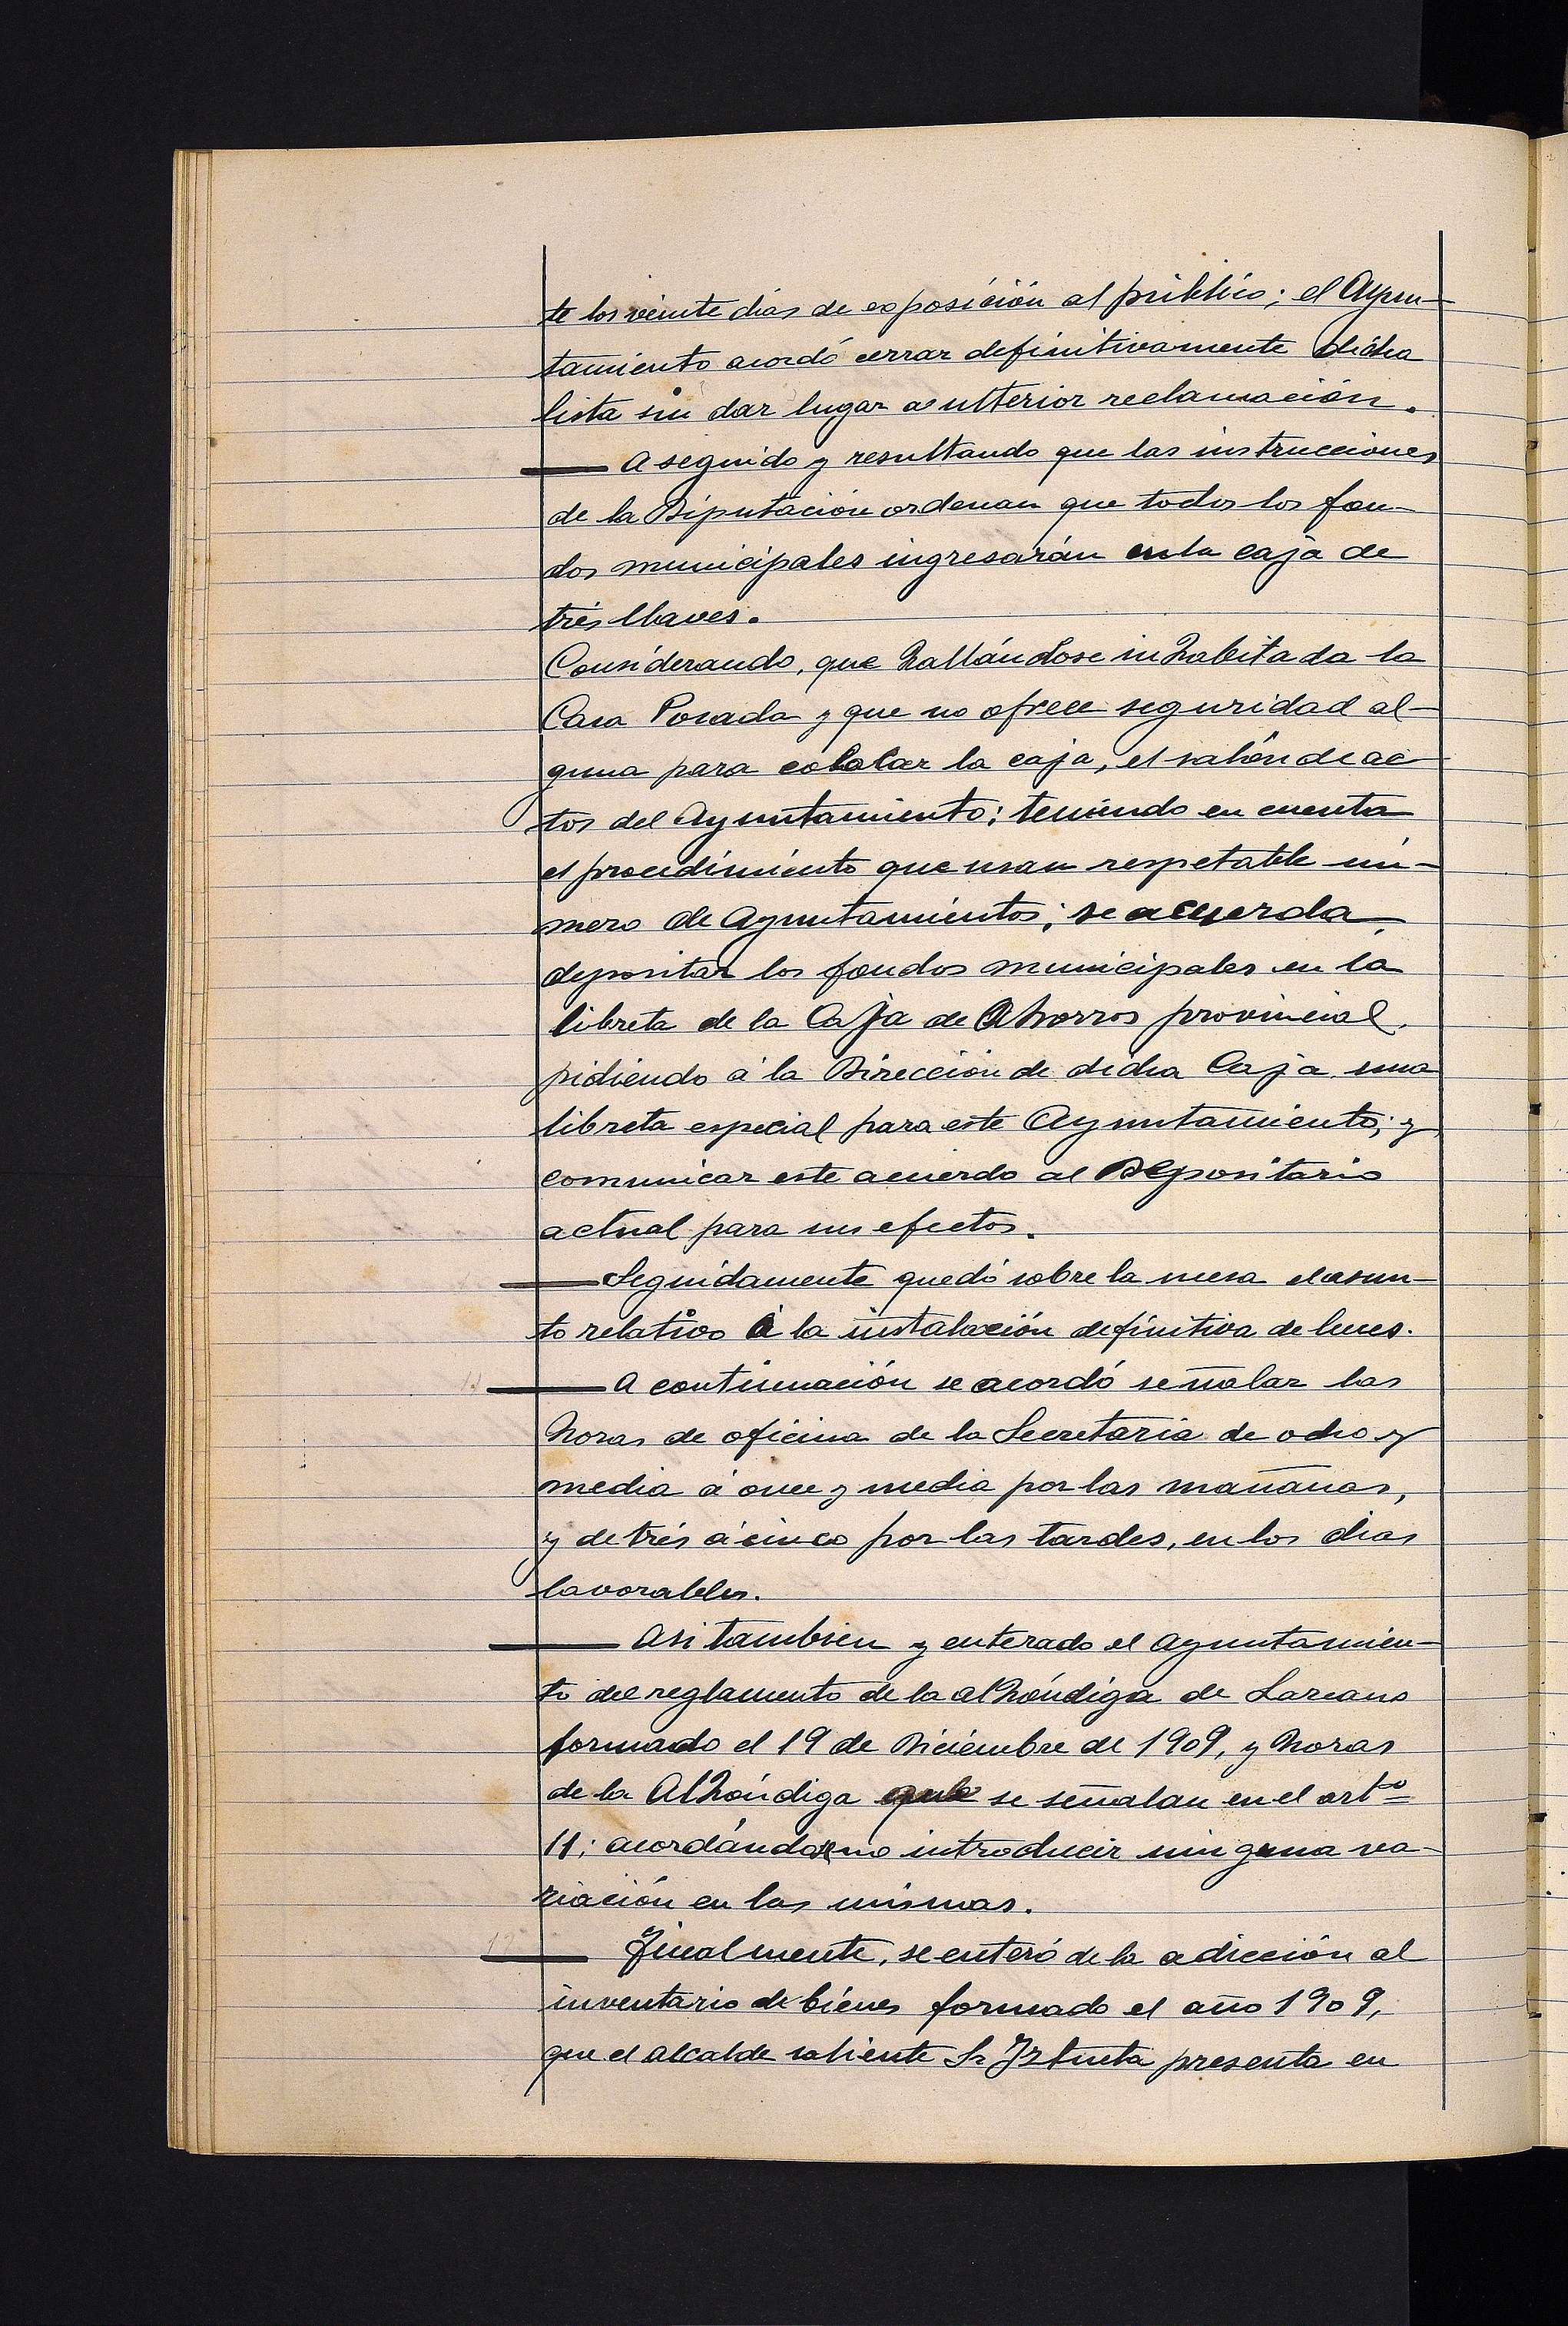 te los veinte dias de exposición al público; el Ayun-
tamiento acordó cerrar definitivamente dicha
lista sin dar lugar a ulterior reclamación.
— A seguido y resultando que las instrucciones
de la Diputación ordenan que todos los fon-
dos municipales ingresarán en la caja de
trés llaves.
Considerando, que hallándose inhabitada la
Casa Posada y que no ofrece seguridad al-
guna para colocar la caja, el salón de ac-
tos del Ayuntamiento; teniendo en cuenta
el procedimiento que usan respetable nú-
mero de Ayuntamientos; se acuerda
depositar los fondos municipales en la
libreta de la Caja de Ahorros provincial,
pidiendo á la Dirección de dicha Caja una
libreta especial para este Ayuntamiento; y
comunicar este acuerdo al Depositario
actual para sus efectos.
— Seguidamente quedó sobre la mesa el asun-
to relativo á la instalación definitiva de luces.
— A continuación se acordó señalar las
horas de oficina de la Secretaria de ocho y
media á once y media por las mañanas,
y de trés á cinco por las tardes, en los dias
lavorables.
— Asi tambien y enterado el Ayuntamien-
to del reglamento de la alhóndiga de Lazcano
formado el 19 de Diciembre de 1909, y horas
de la Alhóndiga que se señalan en el artº
11; acordándose no introducir ninguna va-
riación en las mismas.
— Finalmente, se enteró de la adicción al
inventario de bienes formado el año 1909,
que el alcalde saliente Sr Iztueta presenta en